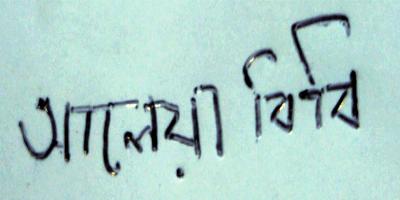 আলেয়া বিবি